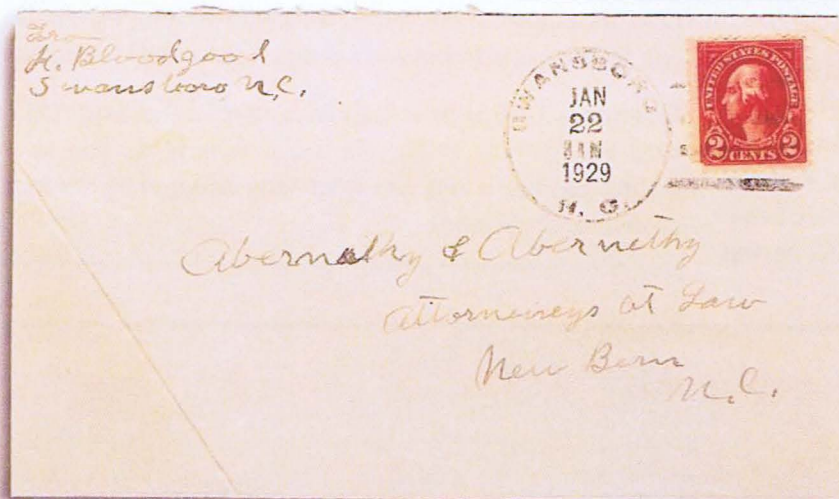 Fro
H. Bloodgood
Swansboro N.C.
SWANSBORO
JAN
22
1929
N. C.
UNITED STATES POSTAGE
2 CENTS 2
Abernathy & Abernethy
Attorneireys at Law
New Bern
N.C.